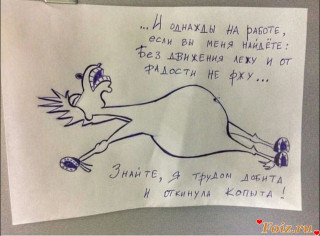 ...И ОДНАЖДЫ НА РАБОТЕ,
ЕСЛИ ВЫ МЕНЯ НАЙДЁТЕ:
БЕЗ ДВИЖЕНИЯ ЛЕЖУ И ОТ
РАДОСТИ НЕ РЖУ...
ЗНАЙТЕ, Я ТРУДОМ ДОБИТА
И ОТКИНУЛА КОПЫТА!
Fotz.ru